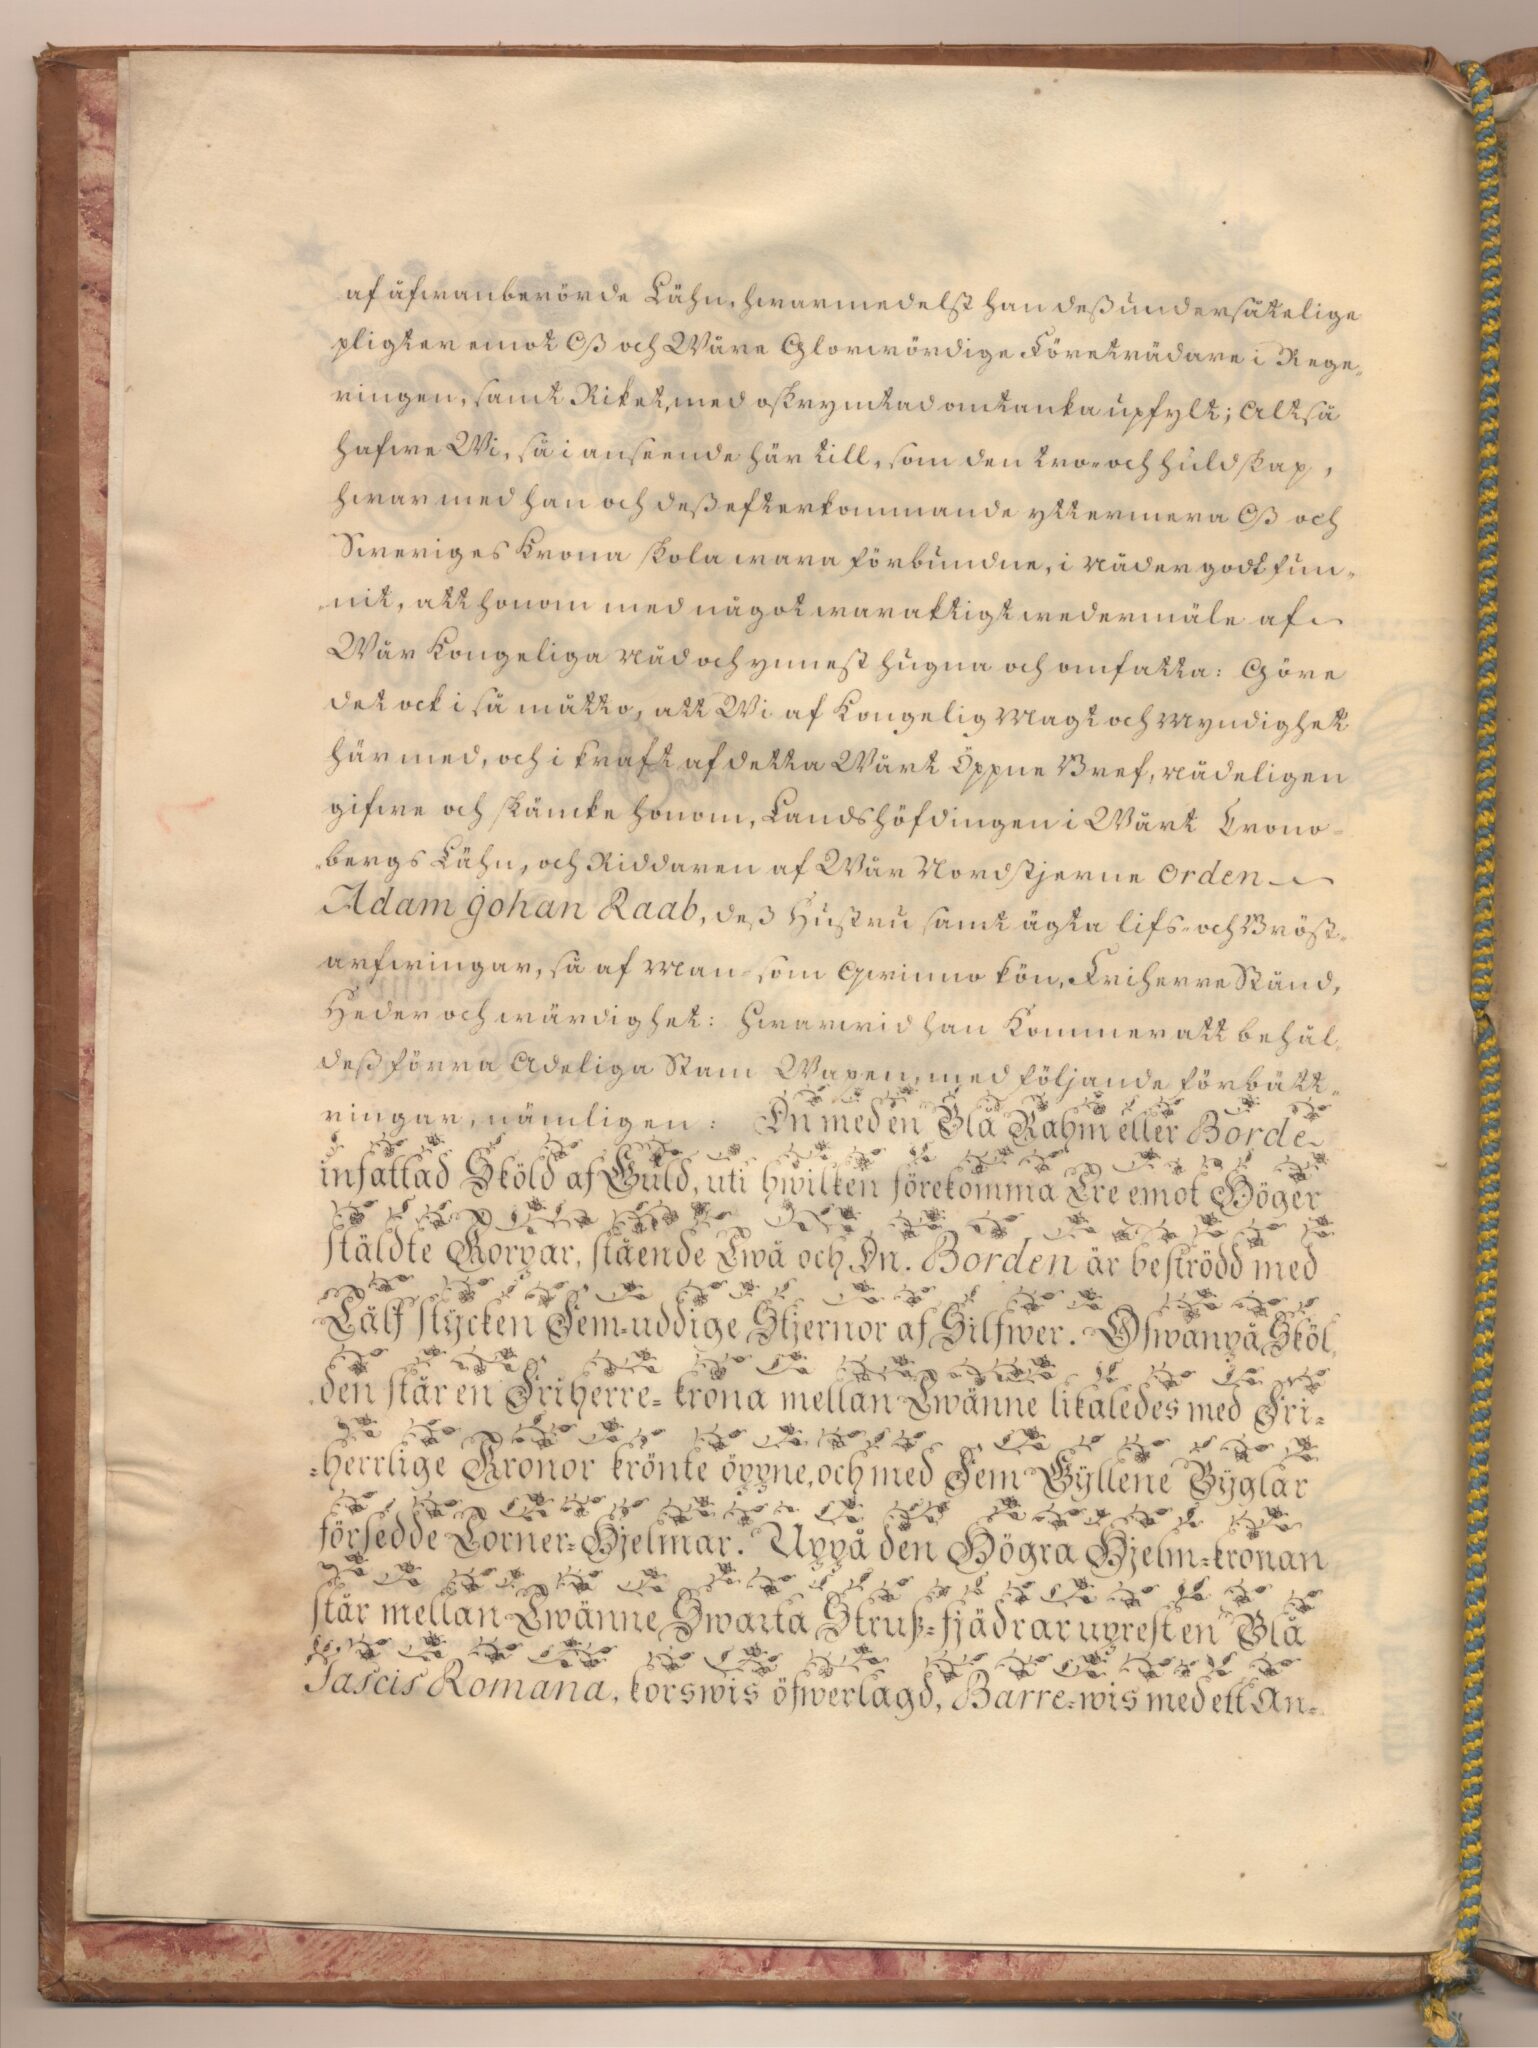 af åfwanberörde Lähn, hwarmedelst han deß undersåtelige
pligter emot Oß och Wåre Glorwördige Företrädare i Rege-
ringen, samt Riket, med oskrymtad omtanka upfylt; Altså
hafwe Wi, så i anseende här till, som den tro- och huldskap,
hwarmed han och deß efterkommande yttermera Oß och
Sweriges Krona skola wara förbundne, i Nåder godt fun-
-nit, att honom med något waraktigt wedermäle af
Wår Kongeliga Nåd och ynnest hugna och omfatta: Göre
det ock i så måtto, att Wi af Kongelig Magt och Myndighet
härmed, och i kraft af detta Wårt Öppne Bref, Nådeligen
gifwe och skänke honom, Landshöfdingen i Wårt Crono-
-bergs Lähn, och Riddaren af Wår Nordstjerne Orden
Adam Johan Raab, deß Hustru samt ägta lifs- och Bröst-
arfwingar, så af Man- som Qwinno kön, Friherre Stånd,
Heder och wärdighet: Hwarwid han Kommer att behål-
deß förra Adeliga Stam Wapen, med följande förbätt-
ringar, nämligen: En med en Blå Rahm eller Borde
infattad Sköld af Guld, uti hwilken förekomma Tre emot Höger
stäldte Korpar, stående Twå och En. Borden är beströdd med
Tålf stycken Fem-uddige Stjernor af Silfwer. Ofwanpå Sköl-
-den står en Friherre-krona mellan Twänne likaledes med Fri-
-herrlige Kronor krönte öppne, och med Fem Gyllene Byglar
försedde Torner-Hjelmar. Uppå den Högra Hjelm-kronan
står mellan Twänne Swarta Struß-fjädrar uprest en Blå
Fascis Romana, korswis öfwerlagd, Barre-wis med ett An-